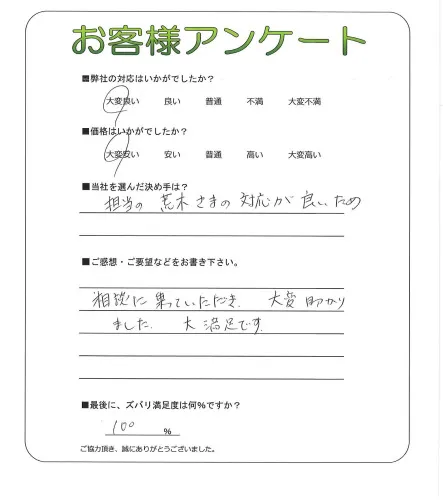 お客様アンケート
■弊社の対応はいかがでしたか?
大変良い 良い 普通 不満 大変不満
■価格はいかがでしたか?
大変安い 安い 普通 高い 大変高い
■当社を選んだ決め手は?
担当の 荒木さまの 対応が 良いため
■ご感想・ご要望などをお書き下さい。
相談に乗っていただき、 大変 助かり
ました. 大満足です.
■最後に、ズバリ満足度は何%ですか?
100 %
ご協力頂き、誠にありがとうございました。